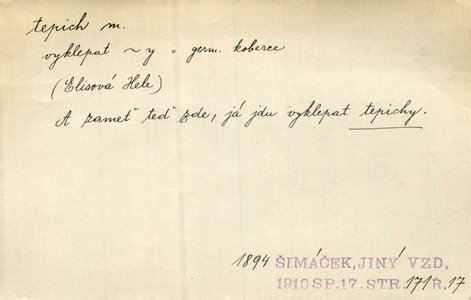 tepich m.
vyklepat ~ y = germ. koberce
(Elisová Hele)
A zameť teď zde, já jdu vyklepat tepichy.
1894 ŠIMÁČEK, JINÝ VZD.
1910 SP. 17. STR. 171 Ř. 17